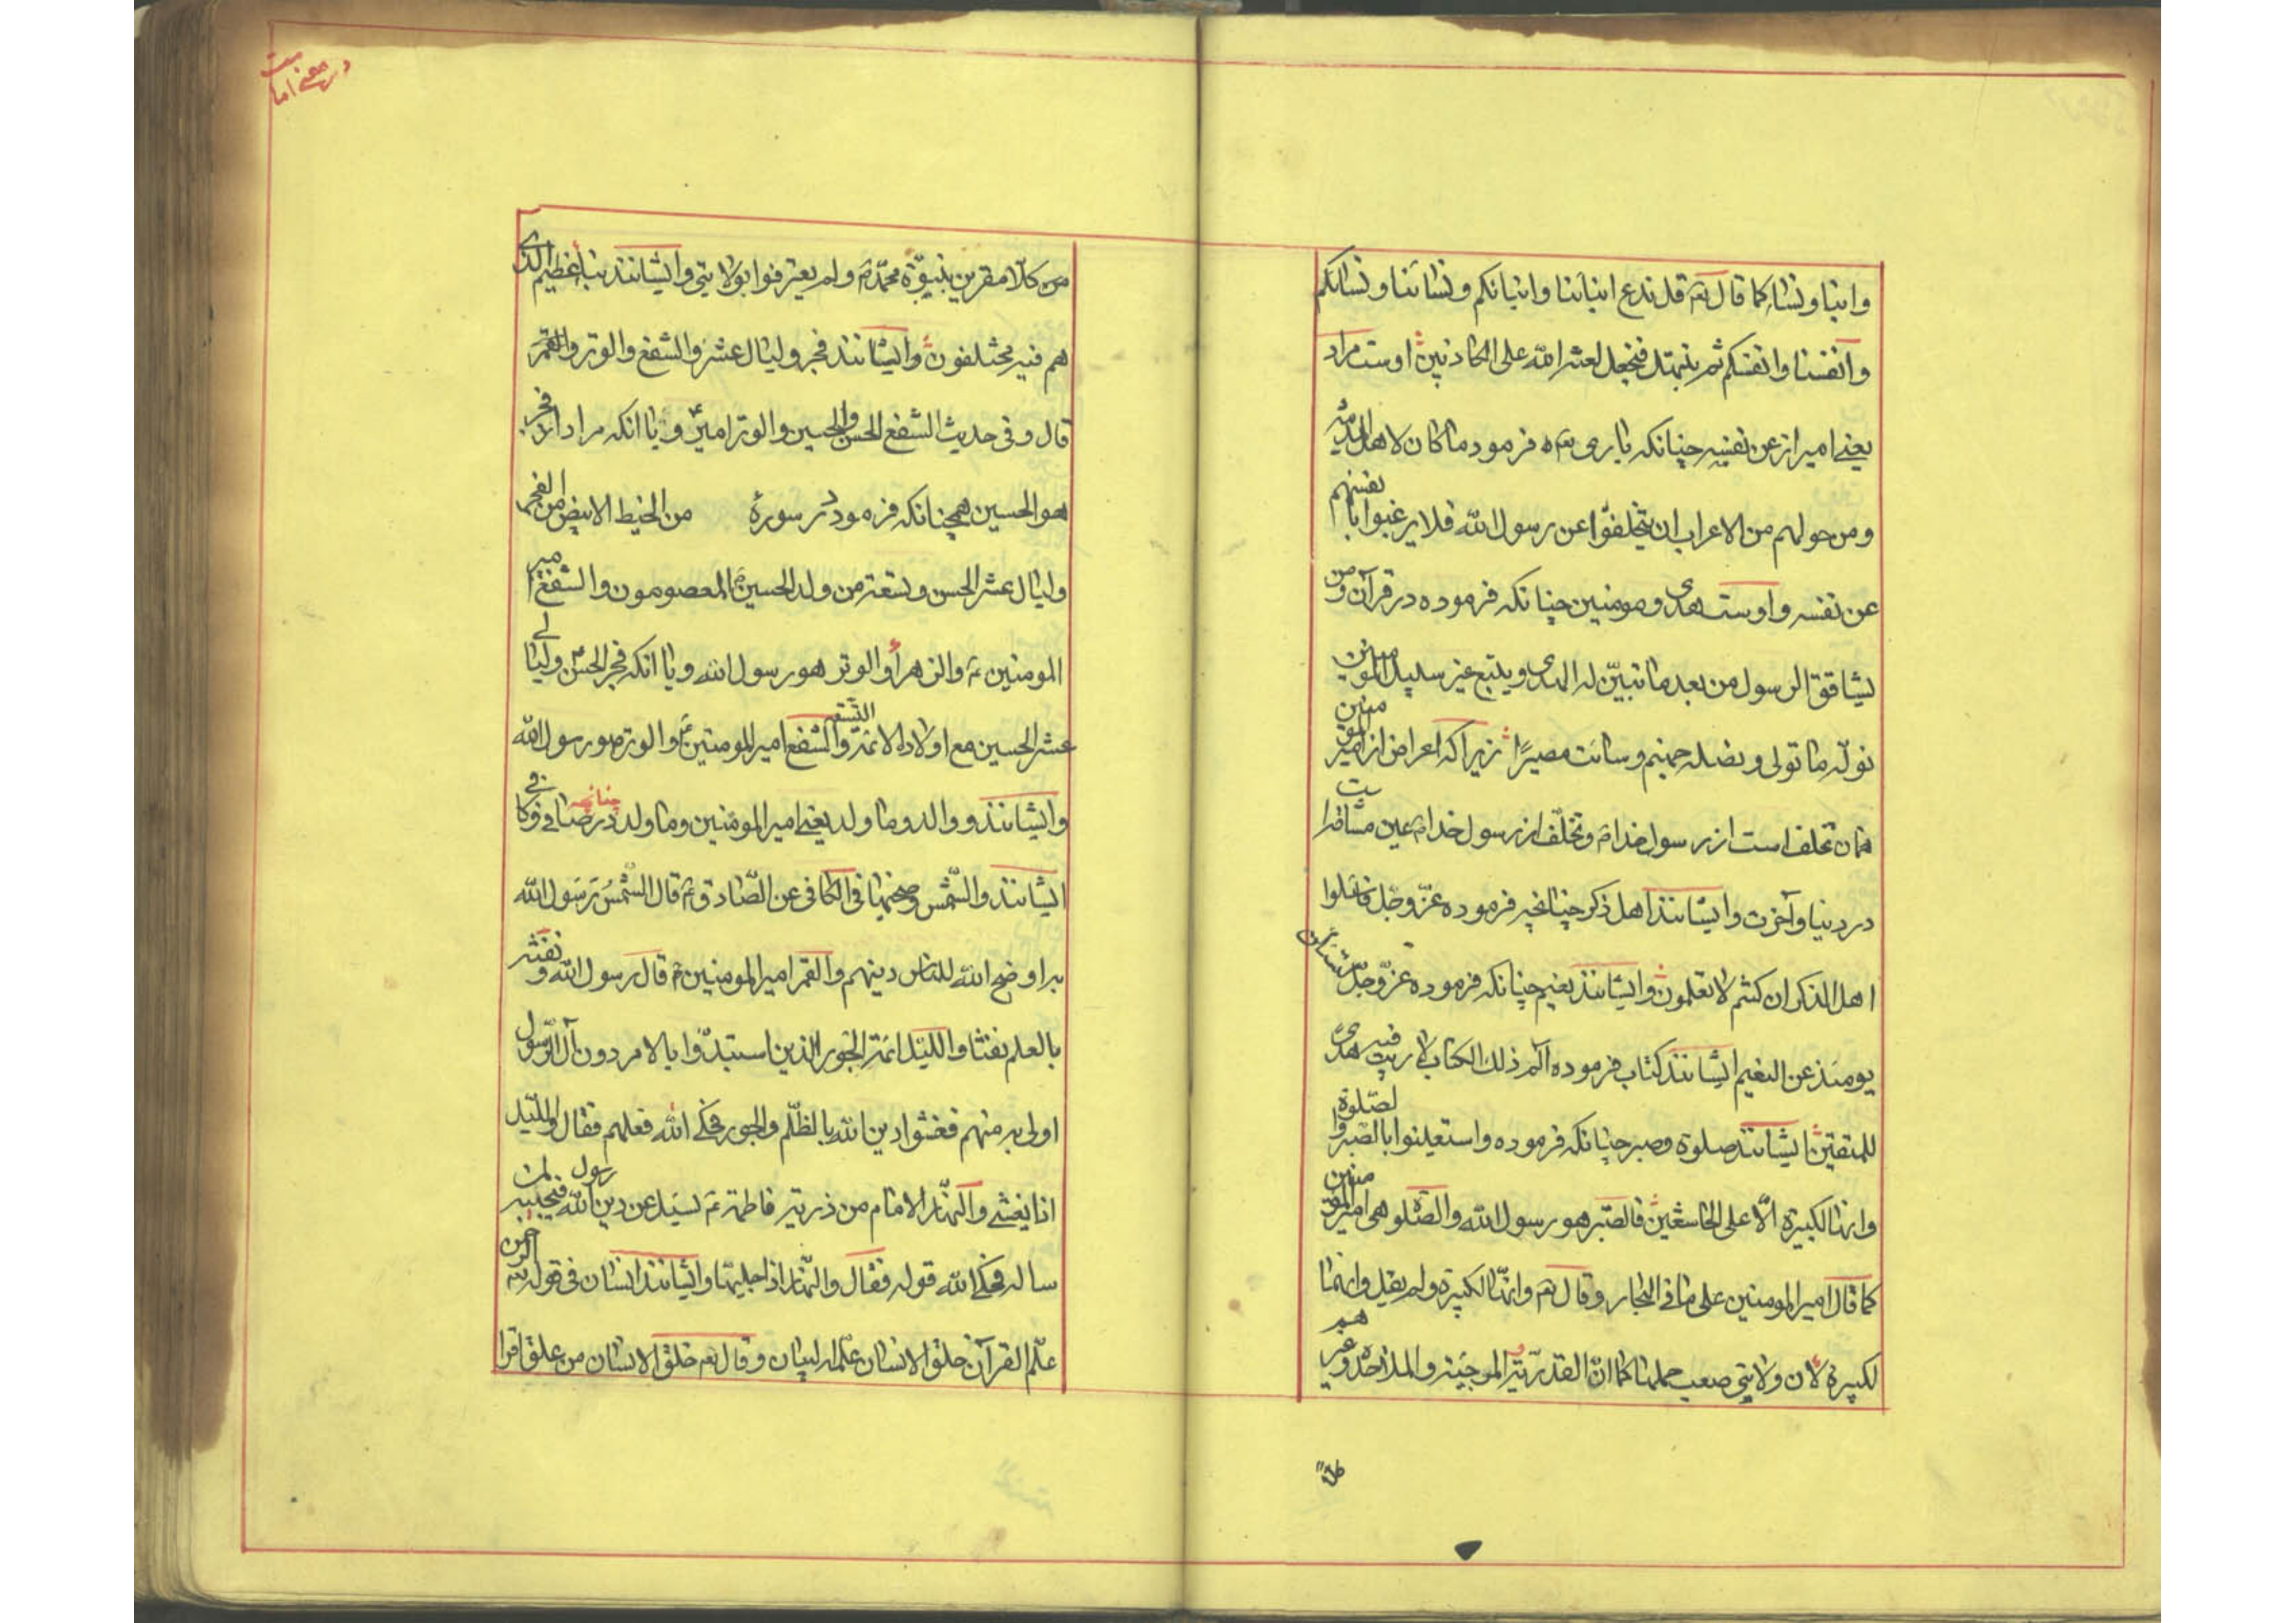 وابنا و نسا کما قال تعم قل ندع ابنائنا وابنائکم ونسائنا ونسائکم
وانفسنا وانفسکم ثم نبتهل فنجعل لعنة الله علی الکاذبین اوست مراد
یعنے امیر از عن نفسه چنانکه باری تعم فرمود ما کان لاهل المدینة
ومن حولهم من الاعراب ان یتخلفوا عن رسول الله فلا یرغبوا بانفسهم
عن نفسه و اوست هدی و مومنین چنانکه فرموده در قرآن ومن
یشاقق الرسول من بعد ما تبیّن له الهدی ویتبع غیر سبیل المومنین
نولّه ما تولی ونصله جهنم وسائت مصیرًا زیرا که اعراض از امیر المومنین
همان تخلف است از رسول خدام و تخلّف از رسول خدام عین مشاقت
در دنیا و آخرت و ایشانند اهل ذکر چنانچه فرموده عزّ وجّل فاسئلوا
اهل الذکر ان کنتم لا تعلمون وایشانند نعیم چنانکه فرموده عزّ وجلّ لتسئلن
یومئذ عن النعیم ایشانند کتاب فرموده آلم ذلك الکتاب لا ریب فیه هدی
للمتقین ایشانند صلوة وصبر چنانکه فرموده واستعینوا بالصبر والصّلوة
وانها لکبیرة الّا علی الخاشعین فالصّبر هو رسول الله والصّلوة هی امیر المومنین
کما قال امیر المومنین علی ما فی البحار وقال تعم وانّها لکبیرة ولم یقل وانهما
لکبیرة لان ولایتی صعب حملها کما انّ القدریّة والمرجئة والملاحدة وغیرهم
در معنے امامت
من کلّا مقرین بنبوّة محمّدم ولم یعترفوا بولایتی وایشانند نبأ عظیم الذی
هم فیه مختلفون وایشانند فجر ولیال عشر والشفع والوتر والقمی
قال وفی حدیث الشفع الحسن والحسین والوتر امیرع و یا انکه مراد از فجر
هو الحسین همچنانکه فرمود در سورۀ من الخیط الابیض من الفجر
ولیال عشر الحسن وتسعة من ولد الحسین المعصومون والشفع امیر
المومنین ع والزهرا والوتر هو رسول الله و یا انکه فجر الحسن ولیالے
عشر الحسین مع اولاده الائمة التسعة والشفع امیر المومنین ع والوتر هو رسول الله
وایشانند ووالد وما ولد یعنے امیر المومنین وما ولد چنانچه در صافے وکافے
ایشانند والشّمس وضحیها فی الکافی عن الصّادق ع قال الشّمس رَسُول الله
به اوضح الله للناس دینهم والقمر امیر المومنین ع قال رسول الله ونفثه
بالعلم نفثا واللیل ائمّة الجور الذین استبدّوا بالامر دون آل الرّسول
اولی به منهم فغشوا دین الله بالظّلم والجور فحکے الله فعلهم فقال واللّیل
اذا یغشے والنّهار الامام من ذریة فاطمة ع یسئل عن دین رسول الله فیجیبه لمن
ساله فحکے الله قوله فقال والنّهار اذا جلیها وایشانند انسان فی قوله تعم الرحمن
علّم القرآن خلق الانسان علّمه البیان وقال تعم خلق الانسان من علق اقرا